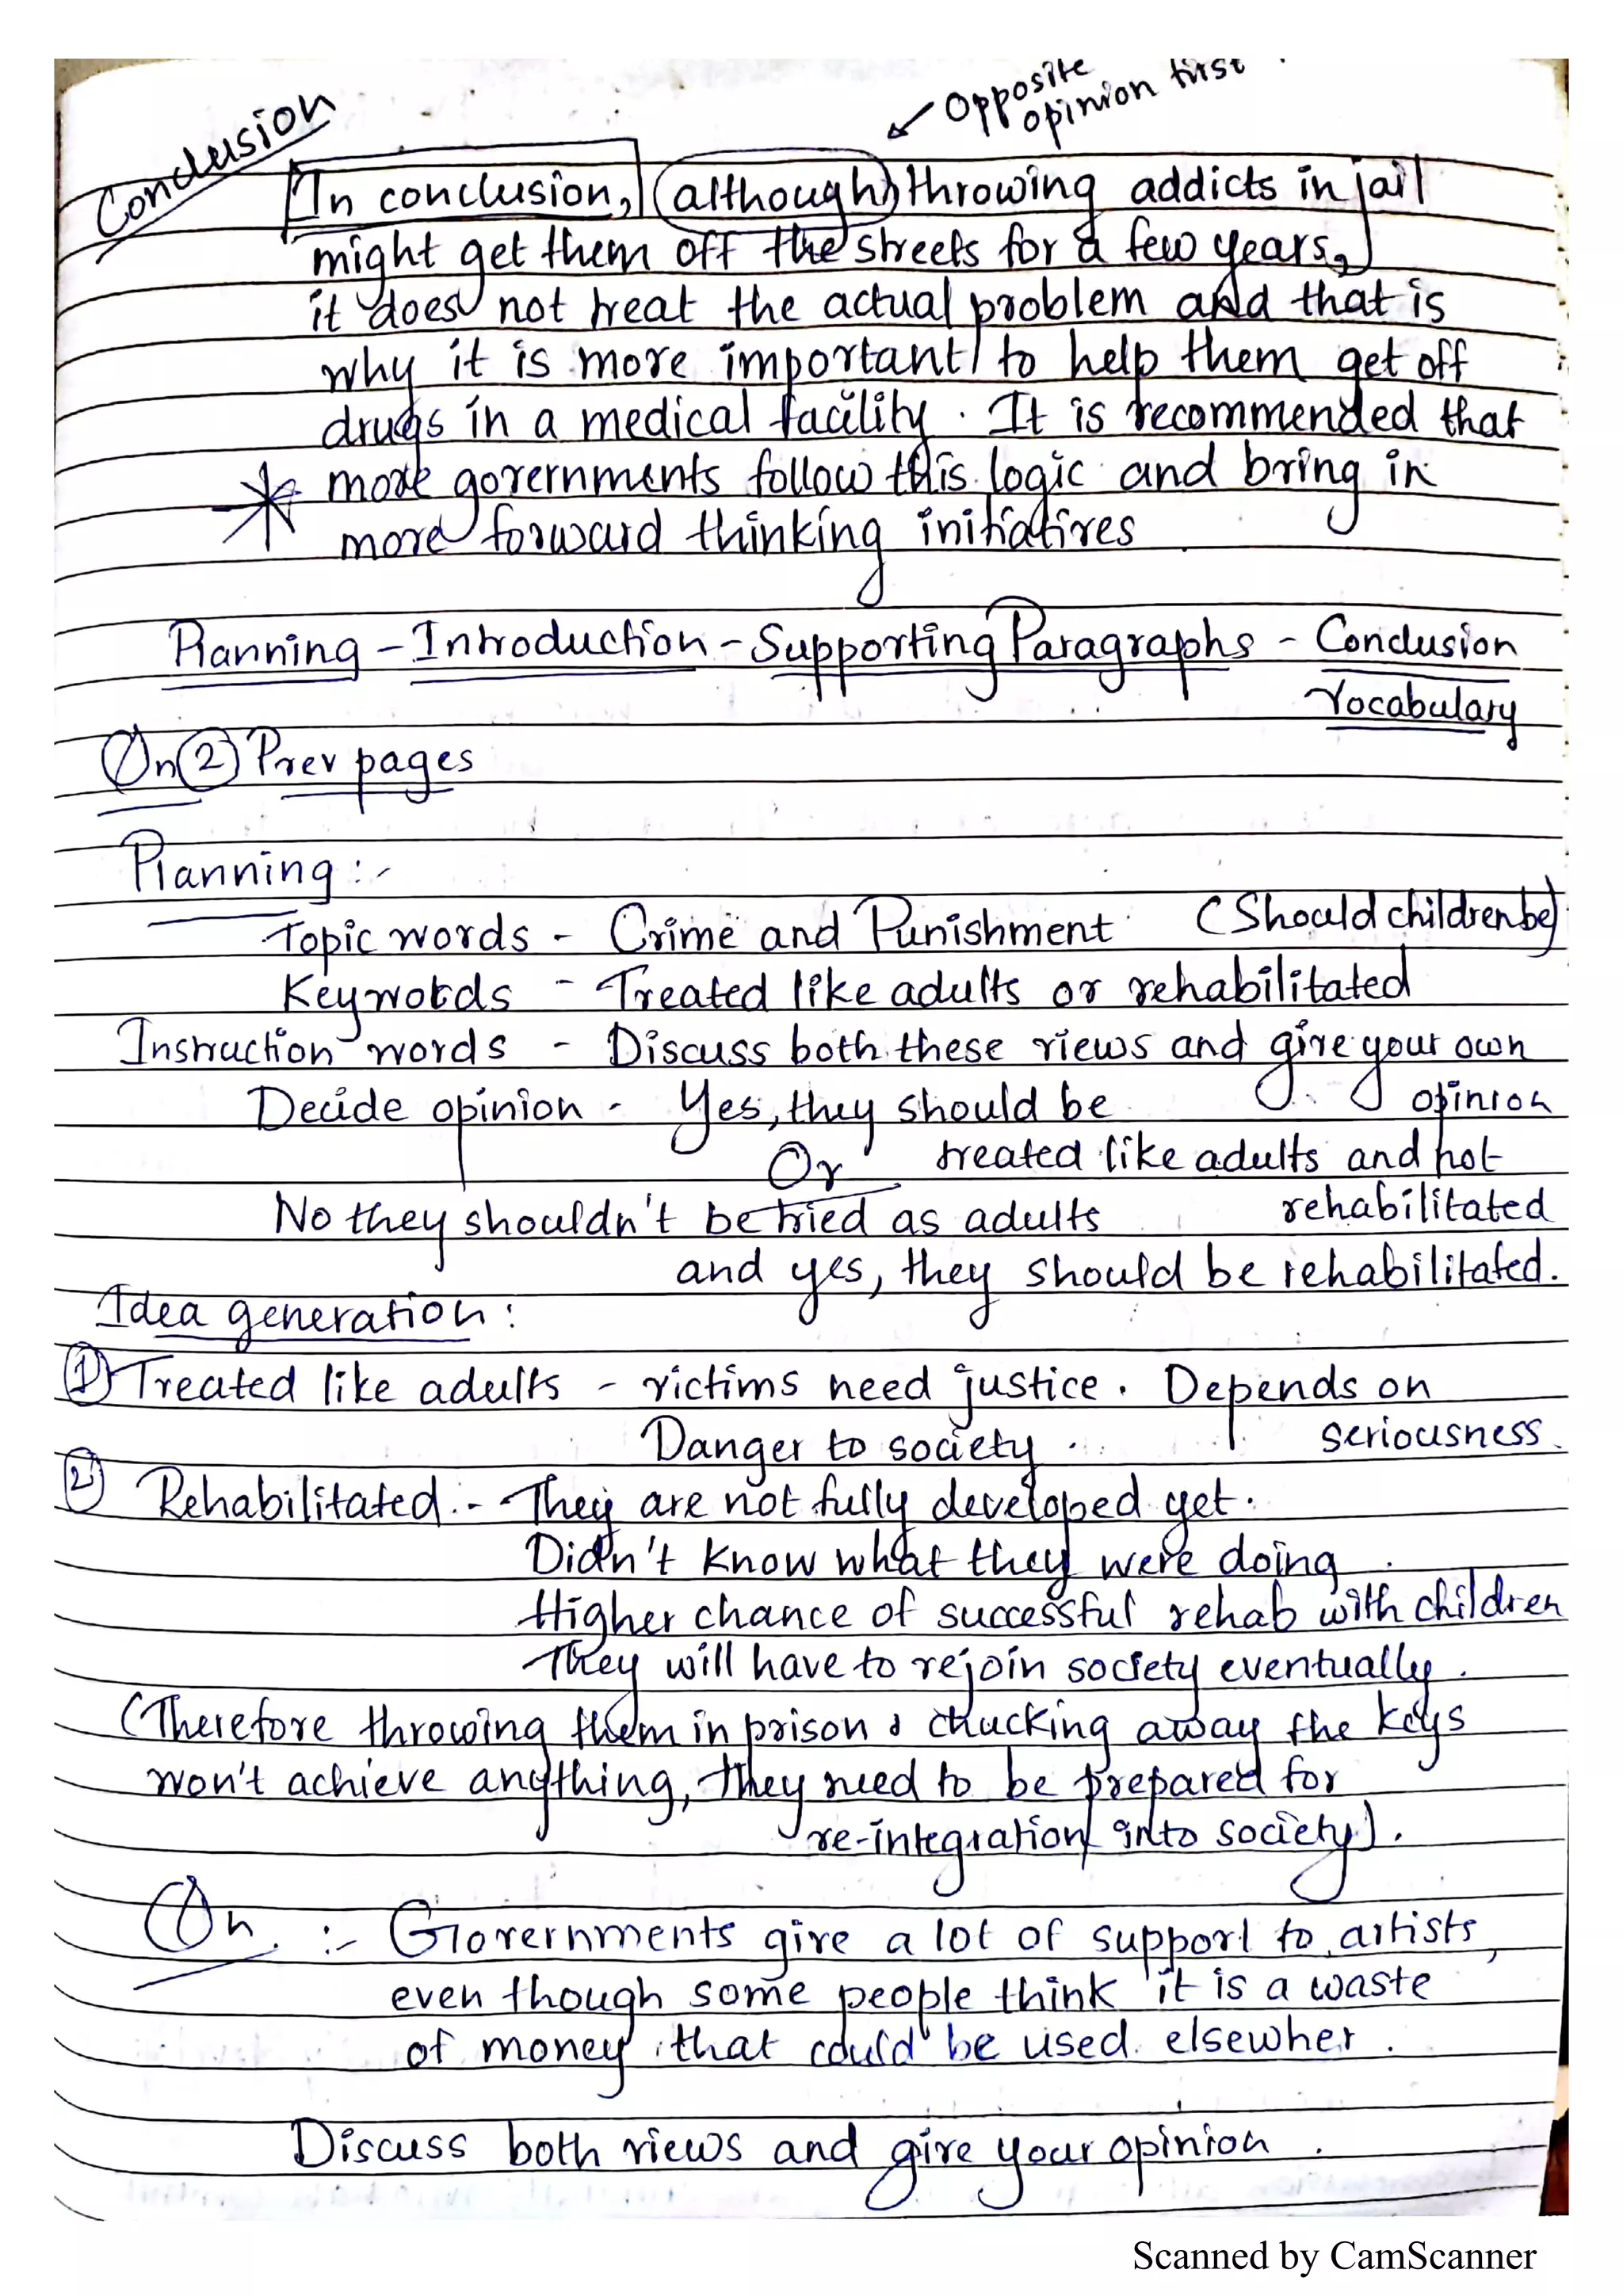 Opposite
opinion first
Conclusion
In conclusion, although throwing addicts in jail
might get them off the streets for a few years,
it does not treat the actual problem and that is
why it is more important to help them get off
drugs in a medical facility. It is recommended that
more governments follow this logic and bring in
more forward thinking initiatives
Planning - Introduction - Supporting Paragraphs - Conclusion
Vocabulary
Qn 2 Prev pages
Planning :-
Topic words - Crime and Punishment (Should children be)
Keywords - Treated like adults or rehabilitated
Instruction words - Discuss both these views and give your own
opinion
Decide opinion - Yes, they should be
treated like adults and not
rehabilitated
Or
No they shouldn't be tried as adults
and yes, they should be rehabilitated.
Idea generation :
1) Treated like adults - victims need justice. Depends on
seriousness.
Danger to society.
2) Rehabilitated :- They are not fully developed yet.
Didn't know what they were doing.
Higher chance of successful rehab with children
They will have to rejoin society eventually.
(Therefore throwing them in prison & chucking away the keys
won't achieve anything, they need to be prepared for
re-integration into society).
Qn. :- Governments give a lot of support to artists,
even though some people think it is a waste
of money that could be used elsewher.
Discuss both views and give your opinion.
Scanned by CamScanner